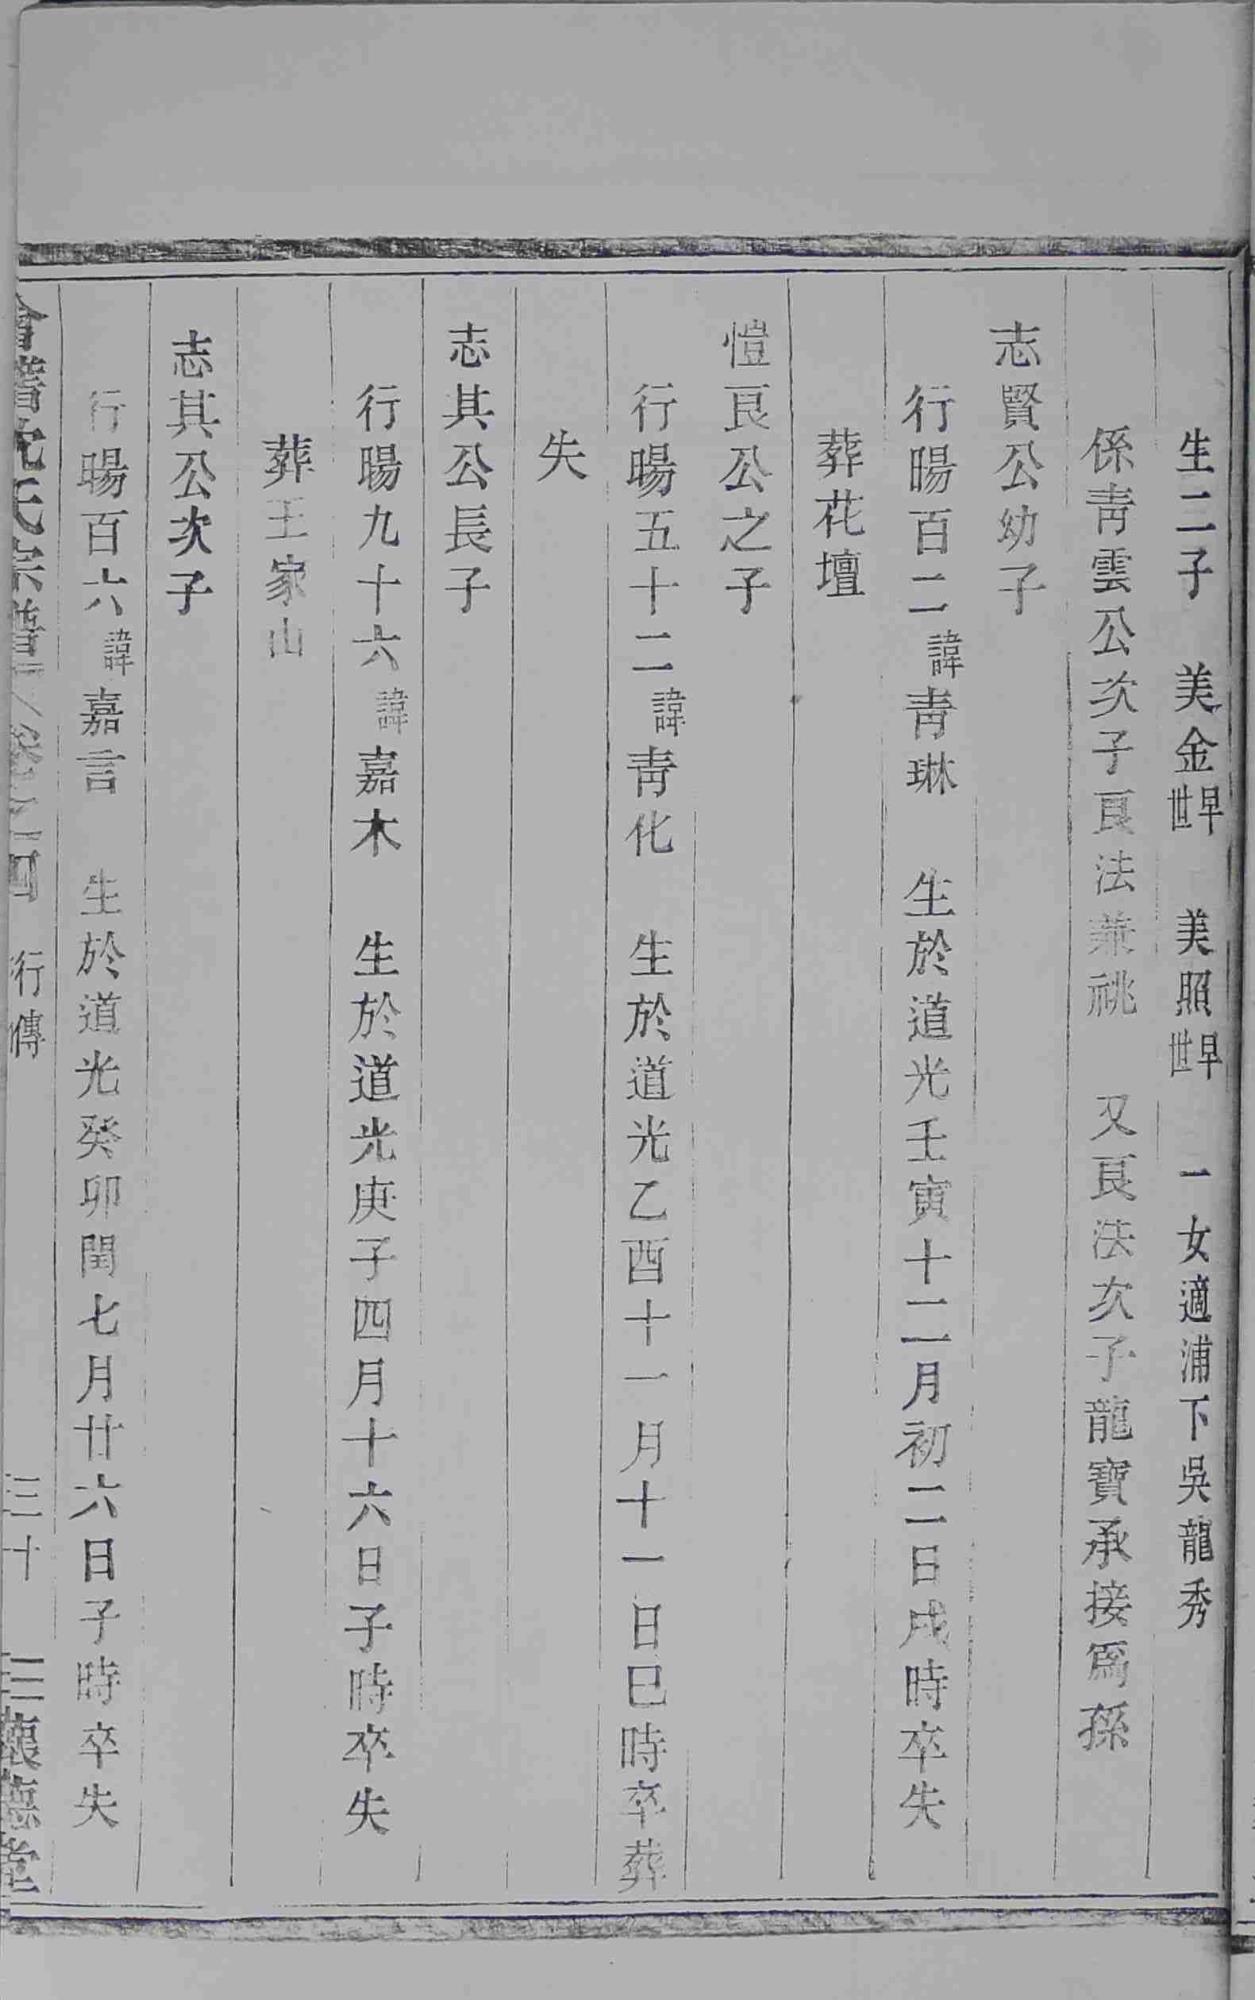 生二子　美金早世　美照早世　一女適浦下吳龍秀
係靑雲公次子良法兼祧　又良法次子龍寶承接爲孫
志賢公幼子
行暘百二諱靑琳　生於道光壬寅十二月初二日戌時卒失
葬花壇
愷良公之子
行暘五十二諱靑化　生於道光乙酉十一月十一日巳時卒葬
失
志其公長子
行暘九十六諱嘉木　生於道光庚子四月十六日子時卒失
葬王家山
志其公次子
行暘百六諱嘉言　生於道光癸卯閏七月廿六日子時卒失
會稽沈氏宗譜　卷之四　行傳　三十　三懷德堂